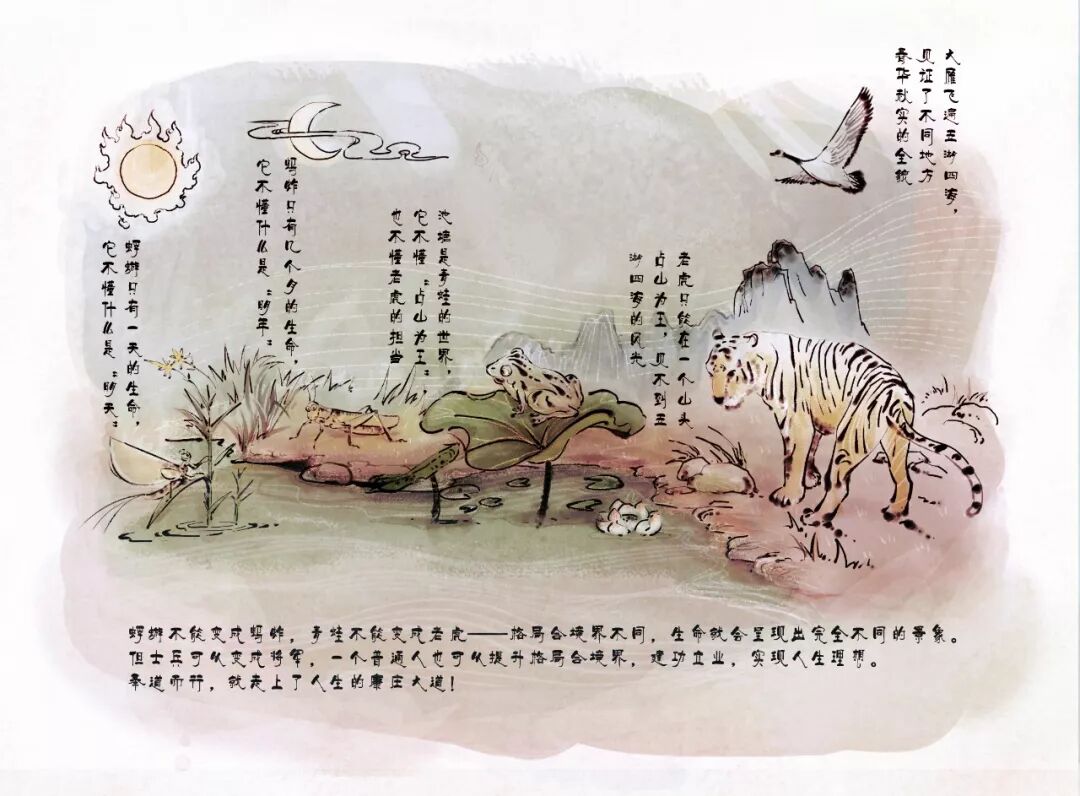 蜉蝣只有一天的生命，
它不懂什么是“明天”
蚂蚱只有几个月的生命，
它不懂什么是“明年”
池塘是青蛙的世界，
它不懂“占山为王”，
也不懂老虎的担当
老虎只能在一个山头
占山为王，见不到五
湖四海的风光
大雁飞遍五湖四海，
见证了不同地方
春华秋实的全貌
蜉蝣不能变成蚂蚱，青蛙不能变成老虎——格局合境界不同，生命就会呈现出完全不同的景象。
但士兵可以变成将军，一个普通人也可以提升格局合境界，建功立业，实现人生理想。
奉道而行，就走上了人生的康庄大道！